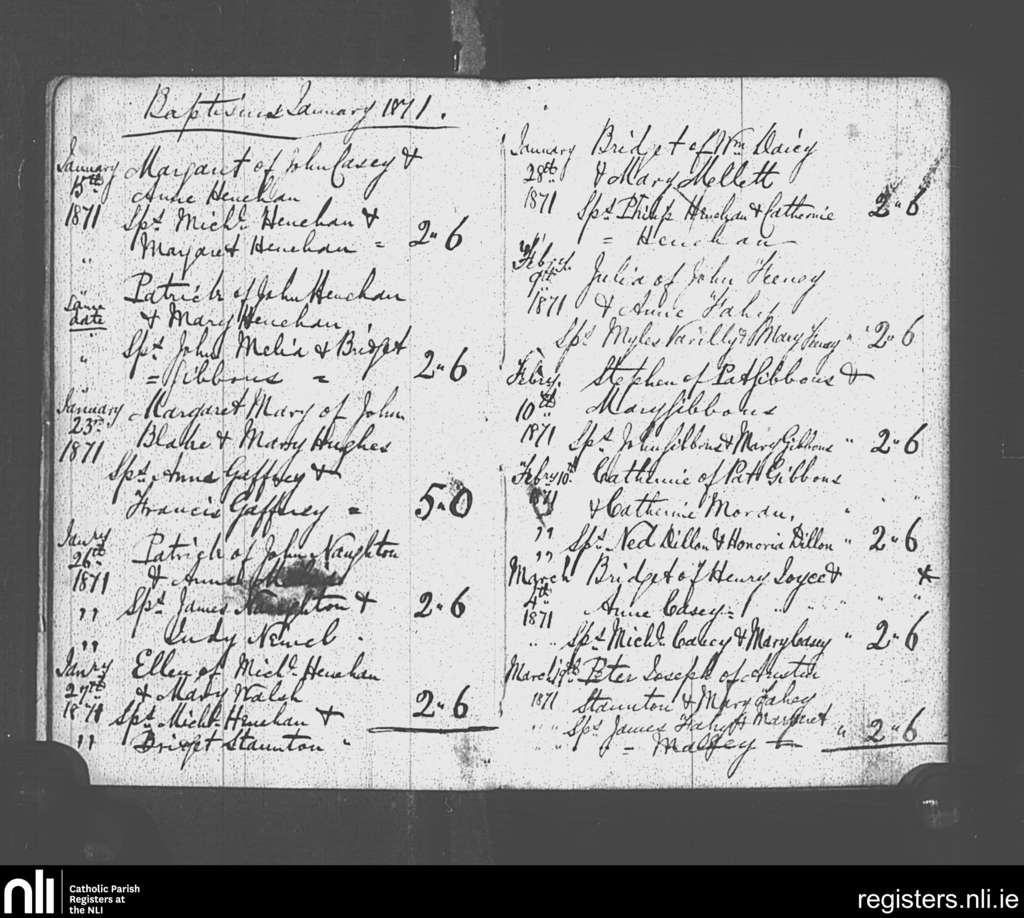 Baptisms January 1871.
January Margaret of John Casey &
15th Anne Henehan
1871 Sps. Michl. Henehan &
Margaret Henehan = 2"6
" Patrick of John Henehan
same date & Mary Henehan
" Sps. John Melia & Bridget
= Gibbons = 2"6
January Margaret Mary of John
23rd Blake & Mary Hughes
1871 Sps. Anne Gaffney &
Francis Gaffney = 5"0
Janry Patrick of John Naughton
26th & Anne
1871 Sps. James Naughton & 2"6
" Judy
Janry Ellen of Michl. Henehan
27th & Mary Walsh 2"6
1871 Sps. Michl. Henehan &
" Bridget Staunton "
January Bridget of Wm Daicy
28th & Mary Mellett
1871 Sps. Philip Henehan & Catherine 2"6
" = Henehan
Febry. Julia of John Feeney
9th
1871 & Anne Fahy
Sps. Myles Varilly & Mary Feeney " 2"6
Febry. Stephen of Pat Gibbons &
10th Mary Gibbons
1871 Sps. John Gibbons & Mary Gibbons " 2"6
Febry 10th Catherine of Patt Gibbons
1871 & Catherine Moran,
" Sps. Ned Dillon & Honoria Dillon " 2"6
"
March Bridget of Henry Joyce &
4th Anne Casey =
1871
Sps. Michl. Casey & Mary Casey " 2"6
March 19th Peter Joseph of Austin
1871 Staunton & Mary Fahey
Sps. James Fahy & Margaret " 2"6
=
nli
Catholic Parish
Registers at
the NLI
registers.nli.ie